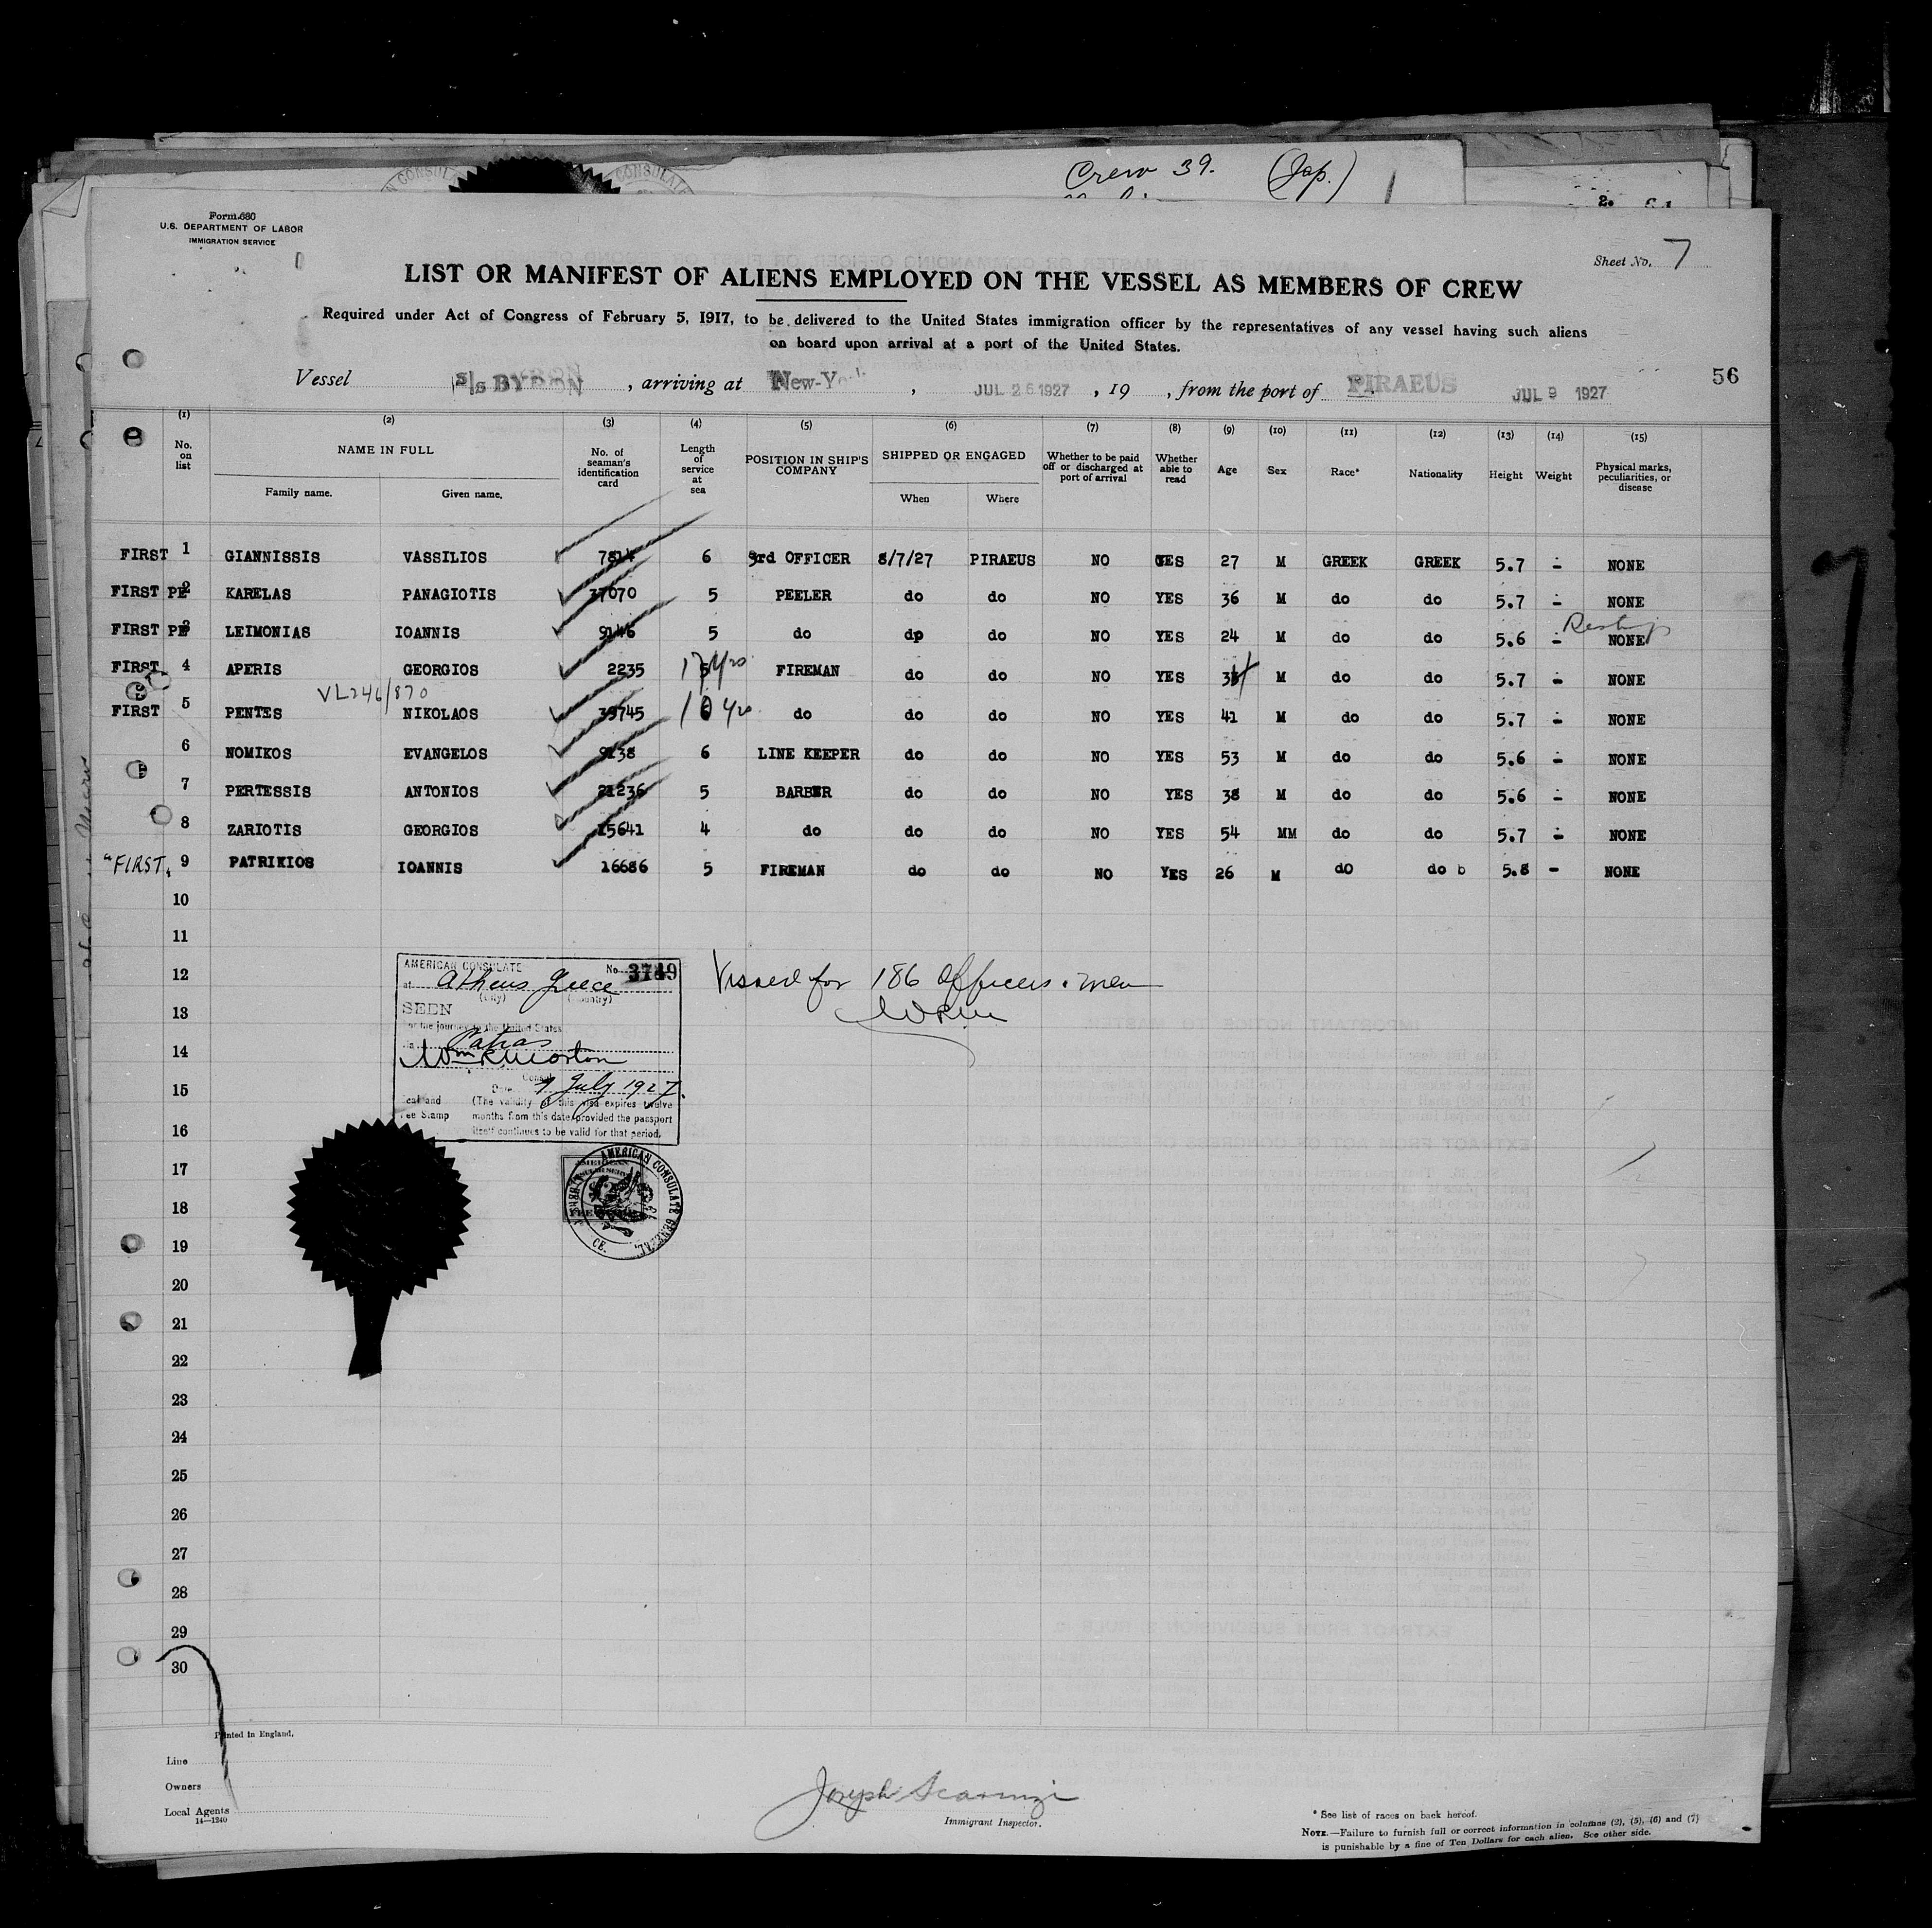 Crew 39. (Jap.)
Form 680
U.S. DEPARTMENT OF LABOR
IMMIGRATION SERVICE
Sheet No. 7
LIST OR MANIFEST OF ALIENS EMPLOYED ON THE VESSEL AS MEMBERS OF CREW
Required under Act of Congress of February 5, 1917, to be delivered to the United States immigration officer by the representatives of any vessel having such aliens
on board upon arrival at a port of the United States.
Vessel S/S BYRON, arriving at New-York, JUL 26 1927, 19 , from the port of PIRAEUS JUL 9 1927
56
(1) (2) (3) (4) (5) (6) (7) (8) (9) (10) (11) (12) (13) (14) (15)
No. on list NAME IN FULL Family name. Given name. No. of seaman's identification card Length of service at sea POSITION IN SHIP'S COMPANY SHIPPED OR ENGAGED When Where Whether to be paid off or discharged at port of arrival Whether able to read Age Sex Race* Nationality Height Weight Physical marks, peculiarities, or disease
FIRST 1 GIANNISSIS VASSILIOS 7814 6 3rd OFFICER 8/7/27 PIRAEUS NO YES 27 M GREEK GREEK 5.7 - NONE
FIRST PE 2 KARELAS PANAGIOTIS 37070 5 PEELER do do NO YES 36 M do do 5.7 - NONE
FIRST PE 3 LEIMONIAS IOANNIS 9146 5 do do do NO YES 24 M do do 5.6 - NONE
FIRST 4 APERIS GEORGIOS 2235 FIREMAN do do NO YES M do do 5.7 - NONE
VL246/870
FIRST 5 PENTES NIKOLAOS 39745 do do do NO YES 41 M do do 5.7 - NONE
6 NOMIKOS EVANGELOS 9138 6 LINE KEEPER do do NO YES 53 M do do 5.6 - NONE
7 PERTESSIS ANTONIOS 21236 5 BARBER do do NO YES 38 M do do 5.6 - NONE
8 ZARIOTIS GEORGIOS 15641 4 do do do NO YES 54 MM do do 5.7 - NONE
"FIRST, 9 PATRIKIOS IOANNIS 16686 5 FIREMAN do do NO YES 26 M do do b 5.8 - NONE
10
11
12
13
14
15
16
17
18
19
20
21
22
23
24
25
26
27
28
29
30
AMERICAN CONSULATE No. 3789
at Athens Greece
(City) (Country)
SEEN
For the journey to the United States
via Patras
Wm R Morton
Consul
Date 7 July 1927.
Seal and Fee Stamp
(The validity of this visa expires twelve
months from this date provided the passport
itself continues to be valid for that period.
Visaed for 186 officers & men
AMERICAN CONSULATE GENERAL
Printed in England.
Line
Owners
Local Agents
14—1240
Joseph Scarinzi
Immigrant Inspector.
* See list of races on back hereof.
NOTE.—Failure to furnish full or correct information in columns (2), (5), (6) and (7)
is punishable by a fine of Ten Dollars for each alien. See other side.